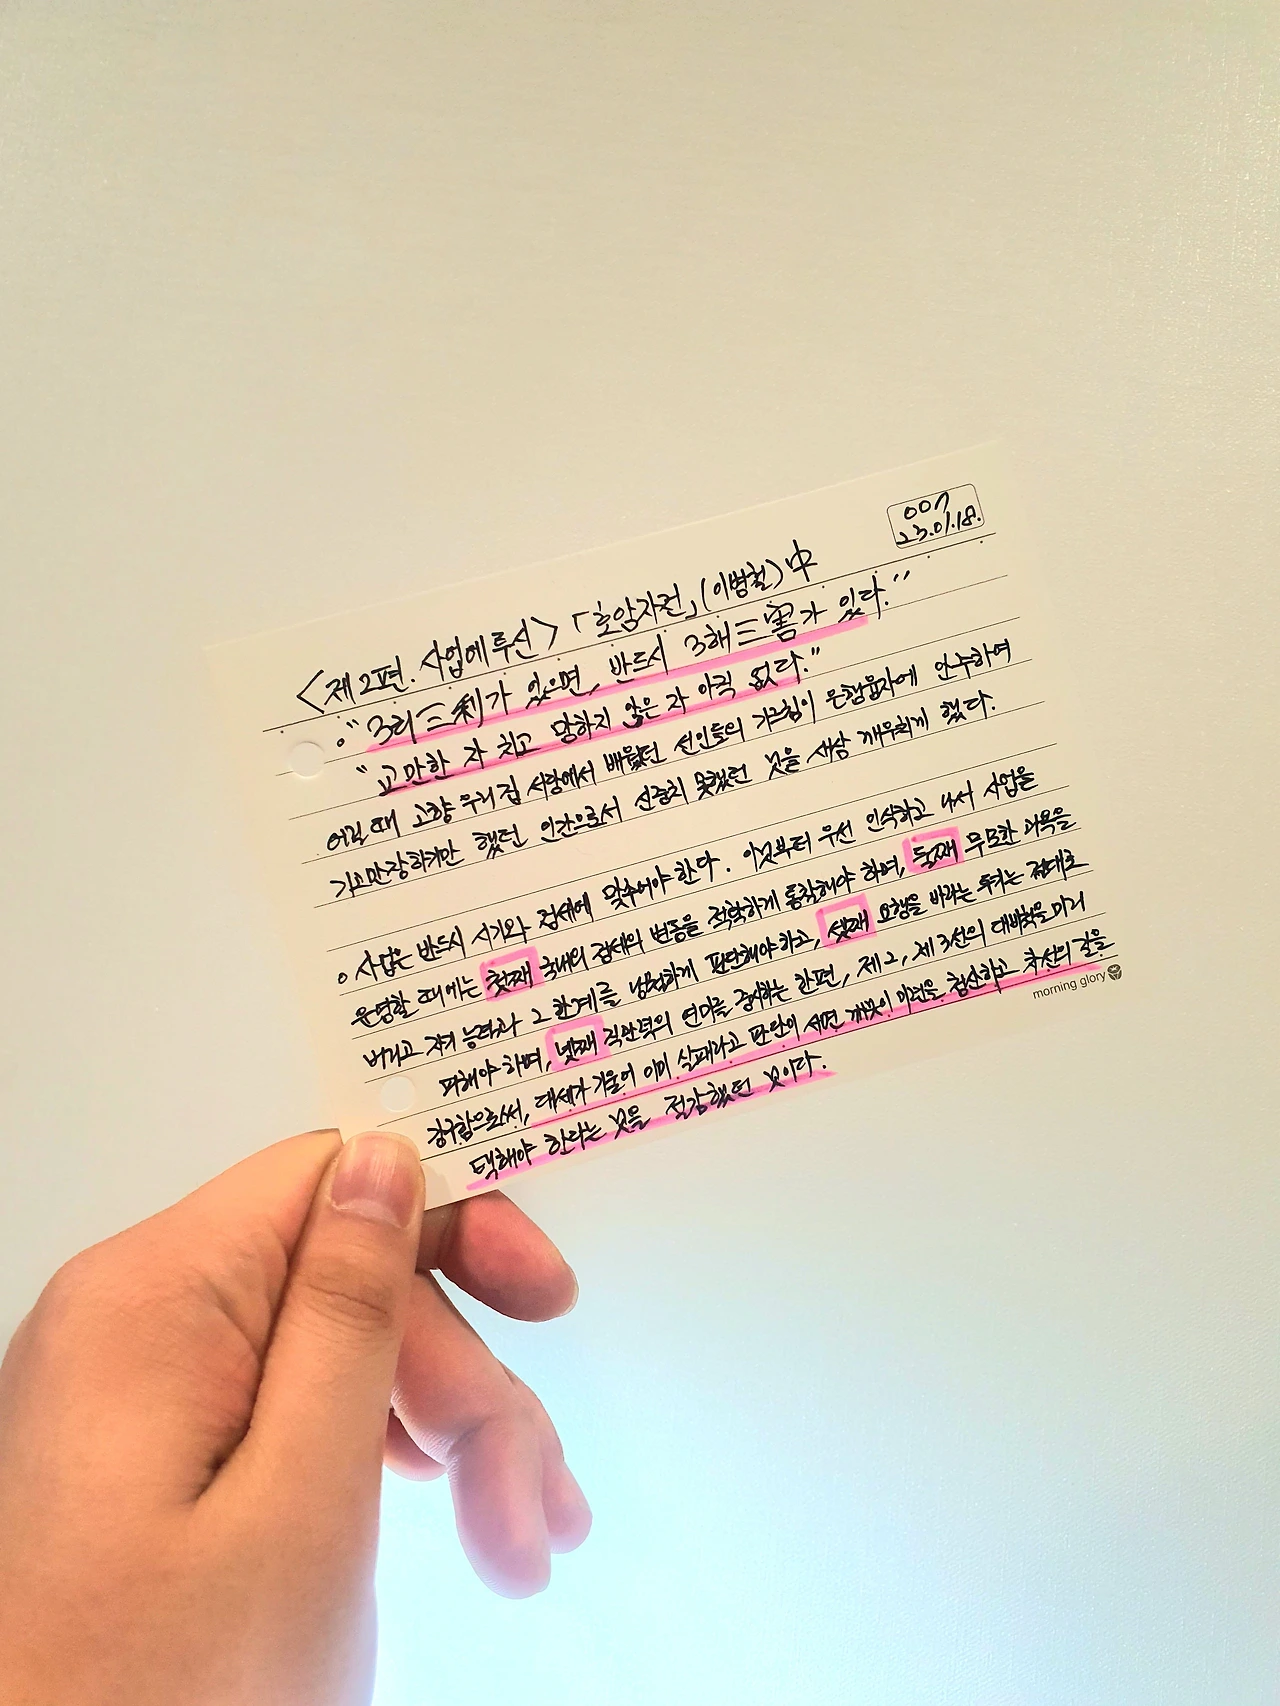 007
23.01.18.
<제2편. 사업에 투신> 「호암자전」(이병철) 中
. "3리三利가 있으면, 반드시 3해三害가 있다."
"교만한 자 치고 망하지 않은 자 아직 없다."
어릴 때 고향 우리집 사랑에서 배웠던 선인들의 가르침이 은행융자에 안주하여
기고만장하기만 했던 인간으로서 신중치 못했던 것을 새삼 깨우치게 했다.
o 사업은 반드시 시기와 정세에 맞추어야 한다. 이것부터 우선 인식하고 나서 사업을
운영할 때에는 첫째 국내외 정세의 변동을 적확하게 통찰해야 하며, 둘째 무모한 과욕을
버리고 자기 능력과 그 한계를 냉철하게 판단해야 하고, 셋째 요행을 바라는 투기는 절대로
피해야 하며, 넷째 직관력의 연마를 중시하는 한편, 제2, 제3선의 대비책을 미리
강구함으로써, 대세가 기울어 이미 실패라고 판단이 서면 깨끗이 미련을 청산하고 차선의 길을
택해야 한다는 것을 절감했던 것이다.
morning glory